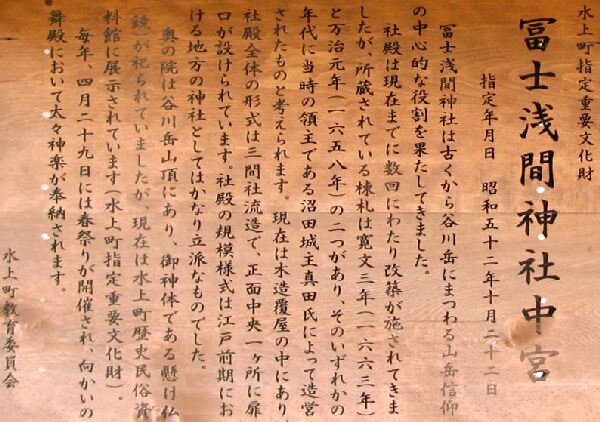 水上町指定重要文化財
冨士浅間神社中宮
指定年月日　昭和五十二年十月二十二日
冨士浅間神社は古くから谷川岳にまつわる山岳信仰
の中心的な役割を果たしてきました。
社殿は現在までに数回にわたり改築が施されてきま
したが、所蔵されている棟札は寛文三年(一六六三年)
と万治元年(一六五八年)の二つがあり、そのいずれかの
年代に当時の領主である沼田城主真田氏によって造営
されたものと考えられます。現在は木造覆屋の中にあり、
社殿全体の形式は三間社流造で、正面中央一ヶ所に扉
口が設けられています。社殿の規模様式は江戸前期にお
ける地方の神社としてはかなり立派なものでした。
奥の院は谷川岳山頂にあり、御神体である懸け仏
(鏡)が祀られていましたが、現在は水上町歴史民俗資
料館に展示されています(水上町指定重要文化財)。
毎年、四月二十九日には春祭りが開催され、向かいの
舞殿において太々神楽が奉納されます。
水上町教育委員会